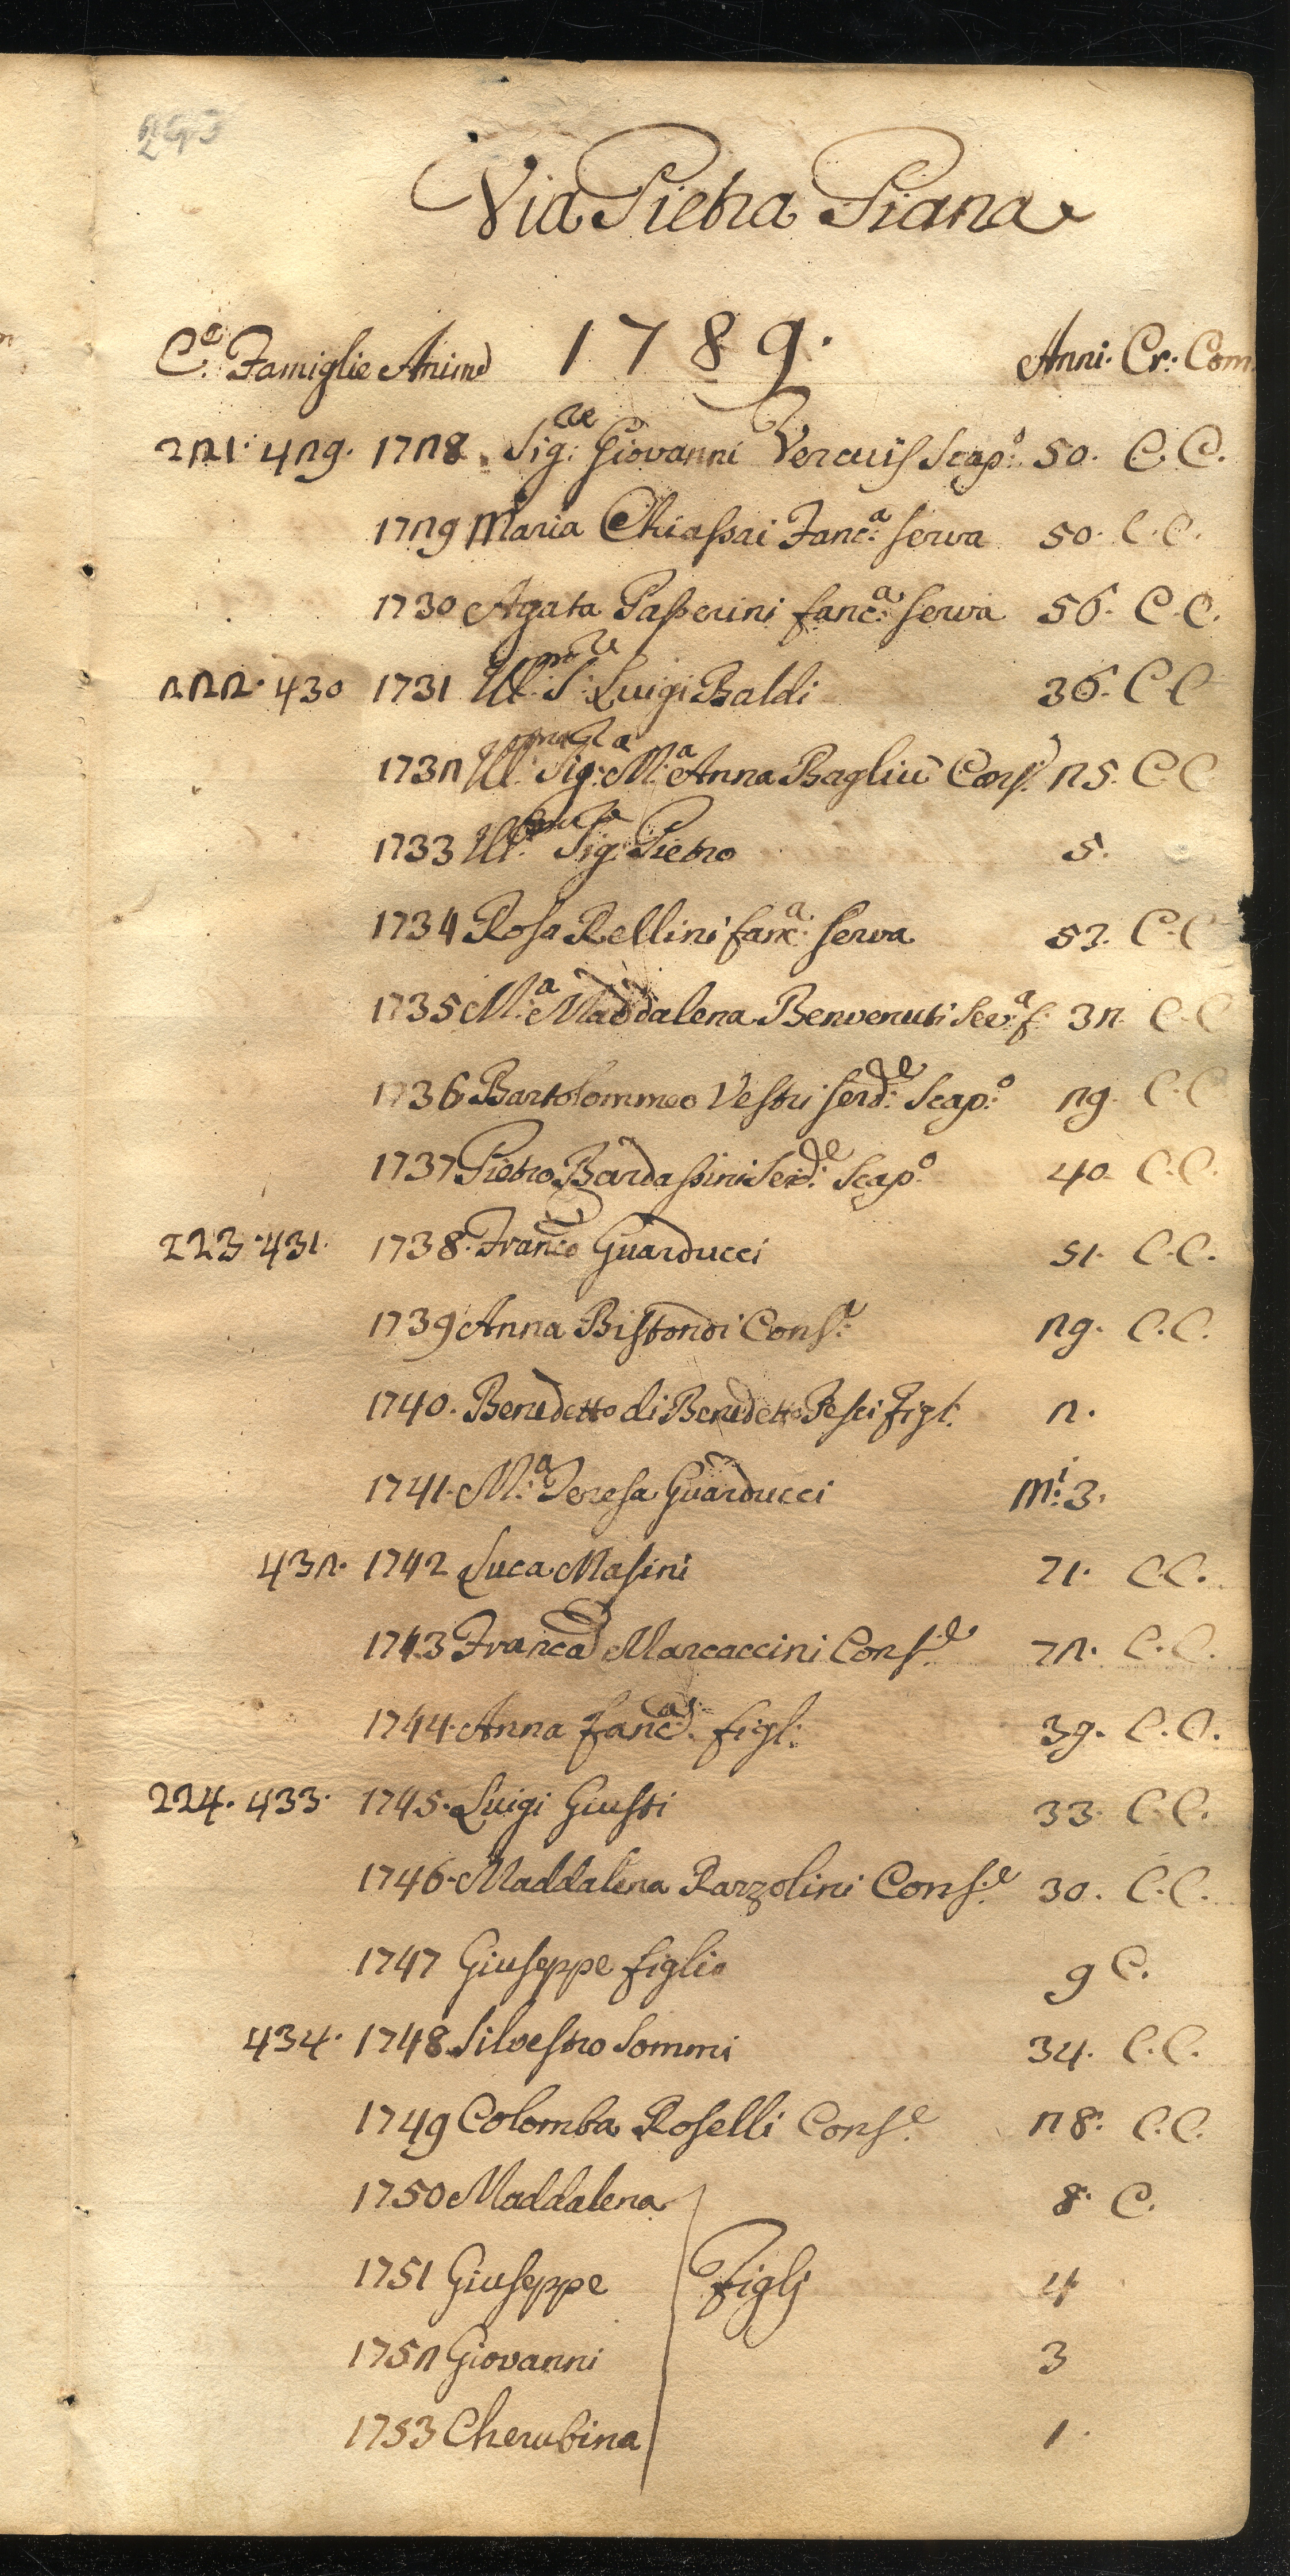 Via Pietra Piana
C.e Famiglie Anime 1789. Anni. Cr. Com.
221. 429. 1728. Sig.re Giovanni Scap.o 50. C. C.
1729 Maria Chiassai Fanc.a serva 50. C. C.
1730 Agata Passerini fanc.a serva 56. C. C.
222. 430 1731 Ill.mo S.re Luigi Baldi 36. C C
1732 Ill.ma Sig.ra M.a Anna Cons. 25. C C
1733 Ill.mo Sig.re Pietro 5.
1734 Rosa Rellini fanc.a serva 53. C. C
1735 M.a Maddalena Benvenuti 32. C. C
1736 Bartolommeo Vestri Serd.e Scap.o 29. C. C
1737 Pietro Bardassini Serd.e Scap.o 40. C. C.
223. 431. 1738. Franco Guarducci 51. C. C.
1739 Anna Bistondi Cons.e 29. C. C.
1740. Benedetto di Benedetto Pesci Figl. 2.
1741. M.a Teresa Guarducci M.i 3.
432. 1742 Luca Masini 71. C. C.
1743 Franca Marcaccini Cons.e 72. C. C.
1744. Anna fanc.a figl. 39. C. C.
224. 433. 1745. Luigi Giusti 33. C. C.
1746. Maddalena Razzolini Cons.e 30. C. C.
1747 Giuseppe figlio 9 C.
434. 1748. Silvestro Sommi 34. C. C.
1749 Colomba Roselli Cons.e 28. C. C.
1750 Maddalena 8. C.
1751 Giuseppe Figlj 4
1752 Giovanni 3
1753 Cherubina 1.